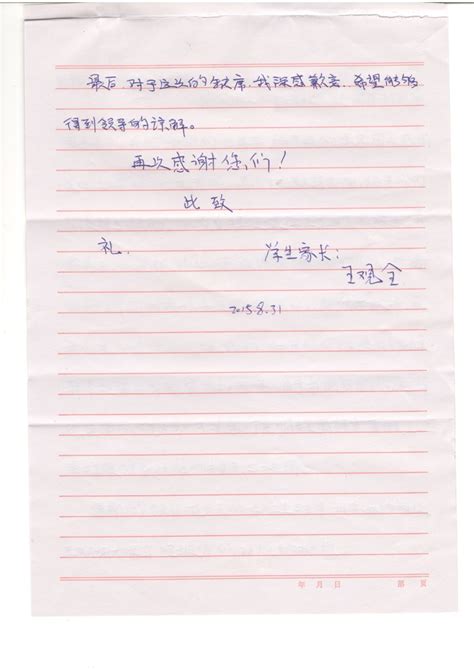 最后，对于这次的缺席，我深感歉意，希望能够
得到领导的谅解。
再次感谢你们！
此致
礼
学生家长：
王观全
2015.8.31
年 月 日 第 页